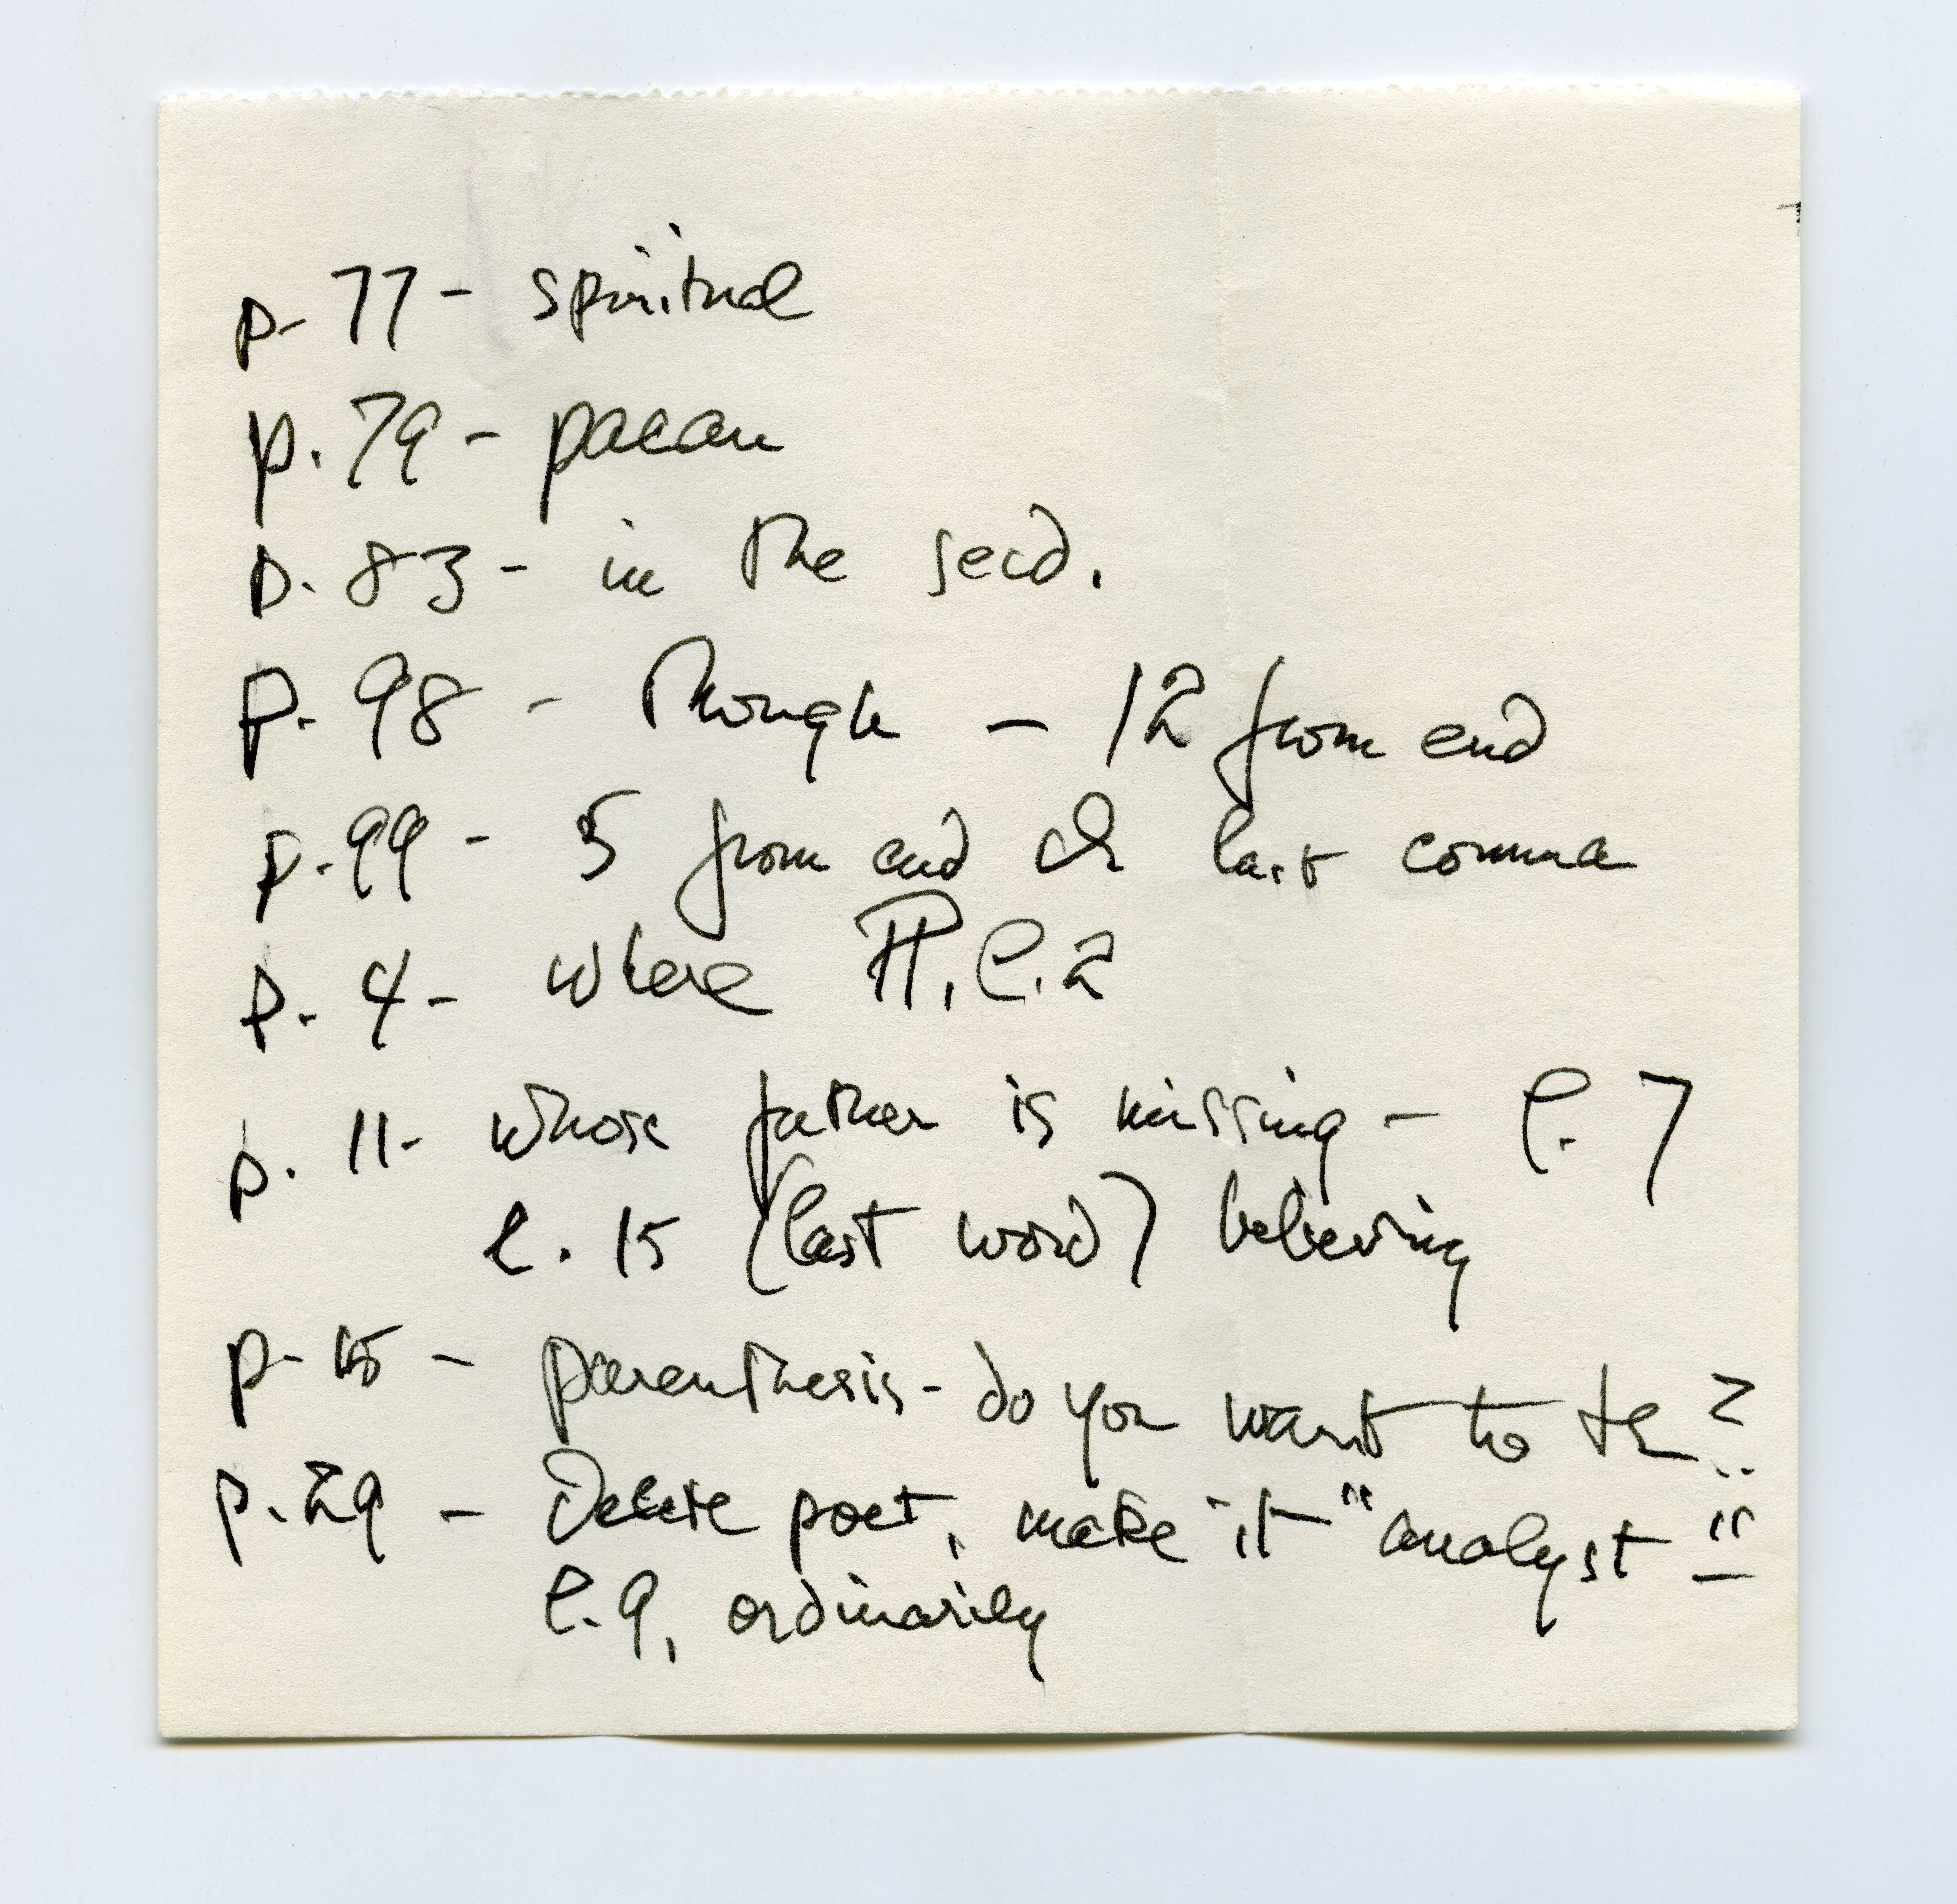 p. 77 - spiritual
p. 79 - paean
p. 83 - in the
p. 98 - Though - 12 from end
p. 99 - 5 from end last comma
p. 4 - where ¶, l. 2
p. 11 - whose father is missing - l. 7
l. 15 (last word) believing
p. 15 - parenthesis - do you want to
p. 29 - Delete poet, make it "analyst"
l. 9, ordinarily